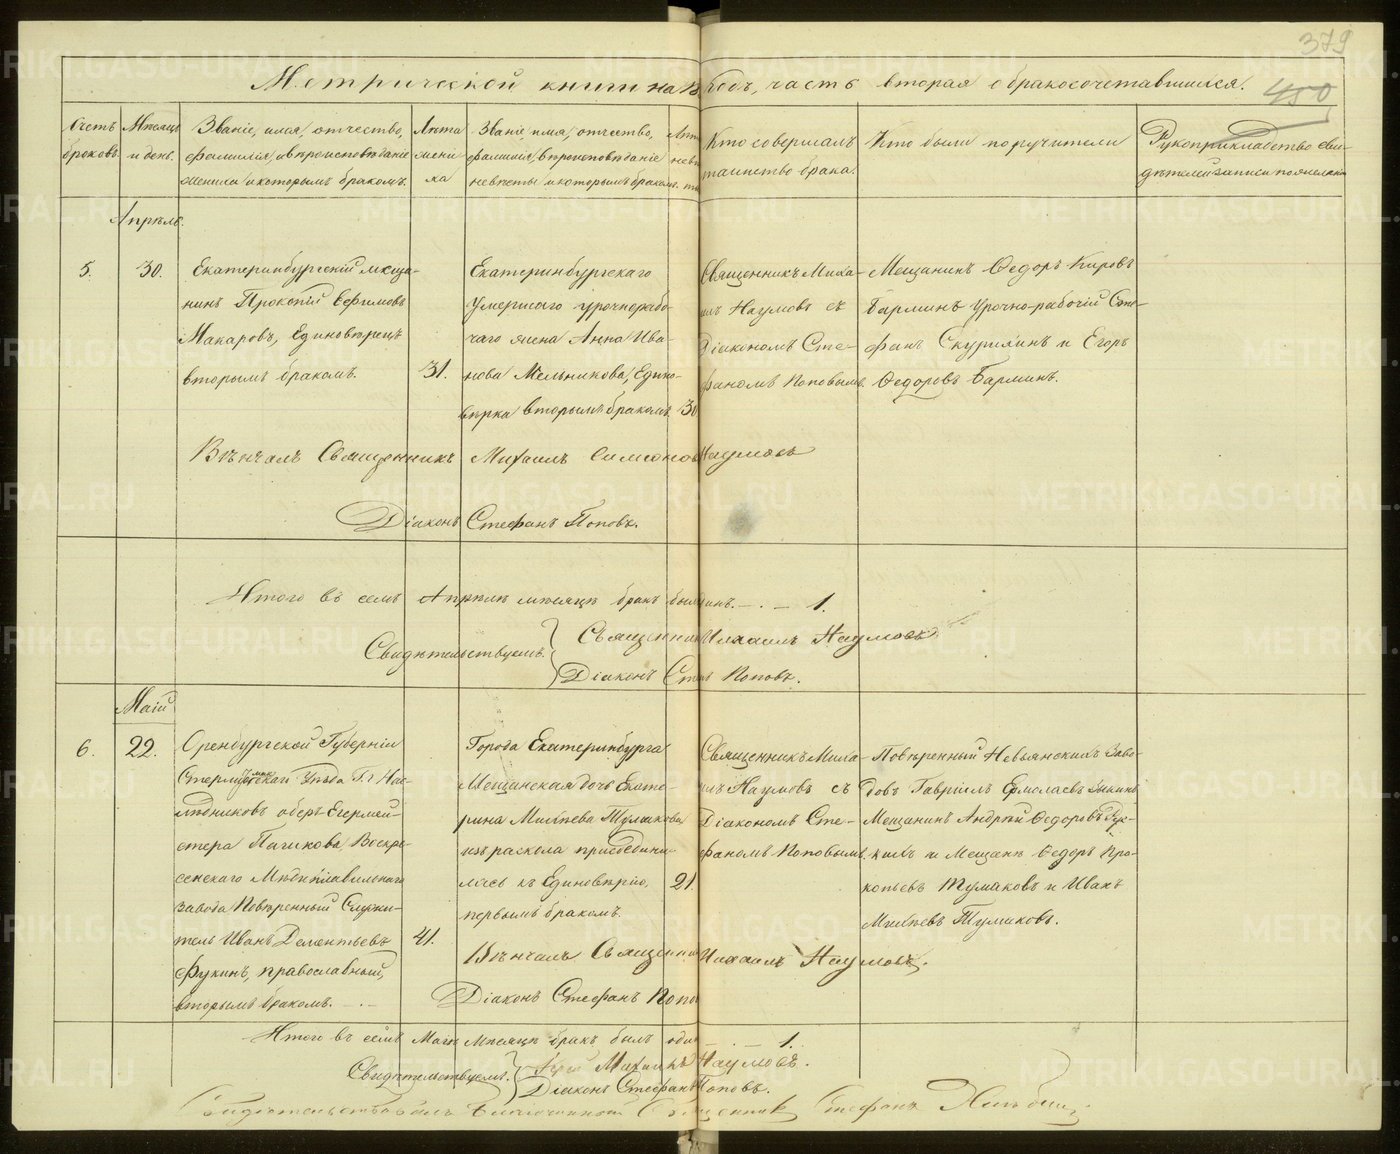 379
450
Метрической книги на 18 годъ, часть вторая о бракосочетавшихся.
Счетъ браковъ.
Мѣсяцъ и день.
Званіе, имя, отчество,
фамилія, вѣроисповѣданіе
жениха и которымъ бракомъ.
Лѣта
жени
ха
Званіе имя, отчество,
фамилія, вѣроисповѣданіе
невѣсты и которымъ бракомъ.
Лѣта
невѣ
сты
Кто совершалъ
таинство брака.
Кто были поручители
Рукоприкладство сви-
дѣтелей записи по желанію
Апрѣль.
5.
30.
Екатеринбургскій мѣща-
нинъ Прокопій Ефимовъ
Макаровъ, Единовѣрецъ
вторымъ бракомъ.
31.
Екатеринбургскаго
умершаго урочнорабо-
чаго жена Анна Ива-
нова Мельникова, Едино-
вѣрка вторымъ бракомъ.
30
Священникъ Миха-
илъ Наумовъ съ
Діакономъ Сте-
фаномъ Поповымъ.
Мещанинъ Ѳедоръ Кировъ
Барминъ Урочно-рабочій Сте-
фанъ Скурихинъ и Егоръ
Ѳедоровъ Барминъ.
Вѣнчалъ Священникъ Михаилъ Симеонов Наумовъ
Діаконъ Стефанъ Поповъ.
Итого въ семъ Апрѣлѣ мѣсяцѣ бракъ былъ одинъ. — . — 1.
Свидѣтельствуемъ.
Священникъ Михаилъ Наумовъ
Діаконъ Сте Поповъ.
Маій
6.
22.
Оренбургской Губерніи
Стерлитамакскаго Уѣзда Г. г. Нас-
лѣдниковъ оберъ Егермей-
стера Пашкова Воскре-
сенскаго Мѣдиплавильнаго
завода Повѣренный Служи-
тель Иванъ Дементьевъ
Фукинъ, православный,
вторымъ бракомъ. — . —
41.
Города Екатеринбурга
Мещанская дочь Екате-
рина Михѣева Тумакова
изъ раскола присоедини-
лась къ Единовѣрію,
первымъ бракомъ.
21.
Священникъ Миха-
илъ Наумовъ съ
Діакономъ Сте-
фаномъ Поповымъ.
Повѣренный Невьянскихъ Заво-
довъ Гавріилъ Ермолаевъ
Мещанинъ Андрей Ѳедоровъ
и Мещане Ѳедоръ Про-
копьевъ Тумаковъ и Иванъ
Михѣевъ Тумаковъ.
Вѣнчалъ Священни Михаилъ Наумовъ.
Діаконъ Стефанъ Попо
Итого въ семъ Маіѣ Мѣсяцѣ бракъ былъ один — . — 1.
Свидѣтельствуемъ.
Михаилъ Наумовъ.
Діаконъ Стефанъ Поповъ.
Свидѣтельствовалъ Благочинный Священникъ Стефанъ
METRIKI.GASO-URAL.RU